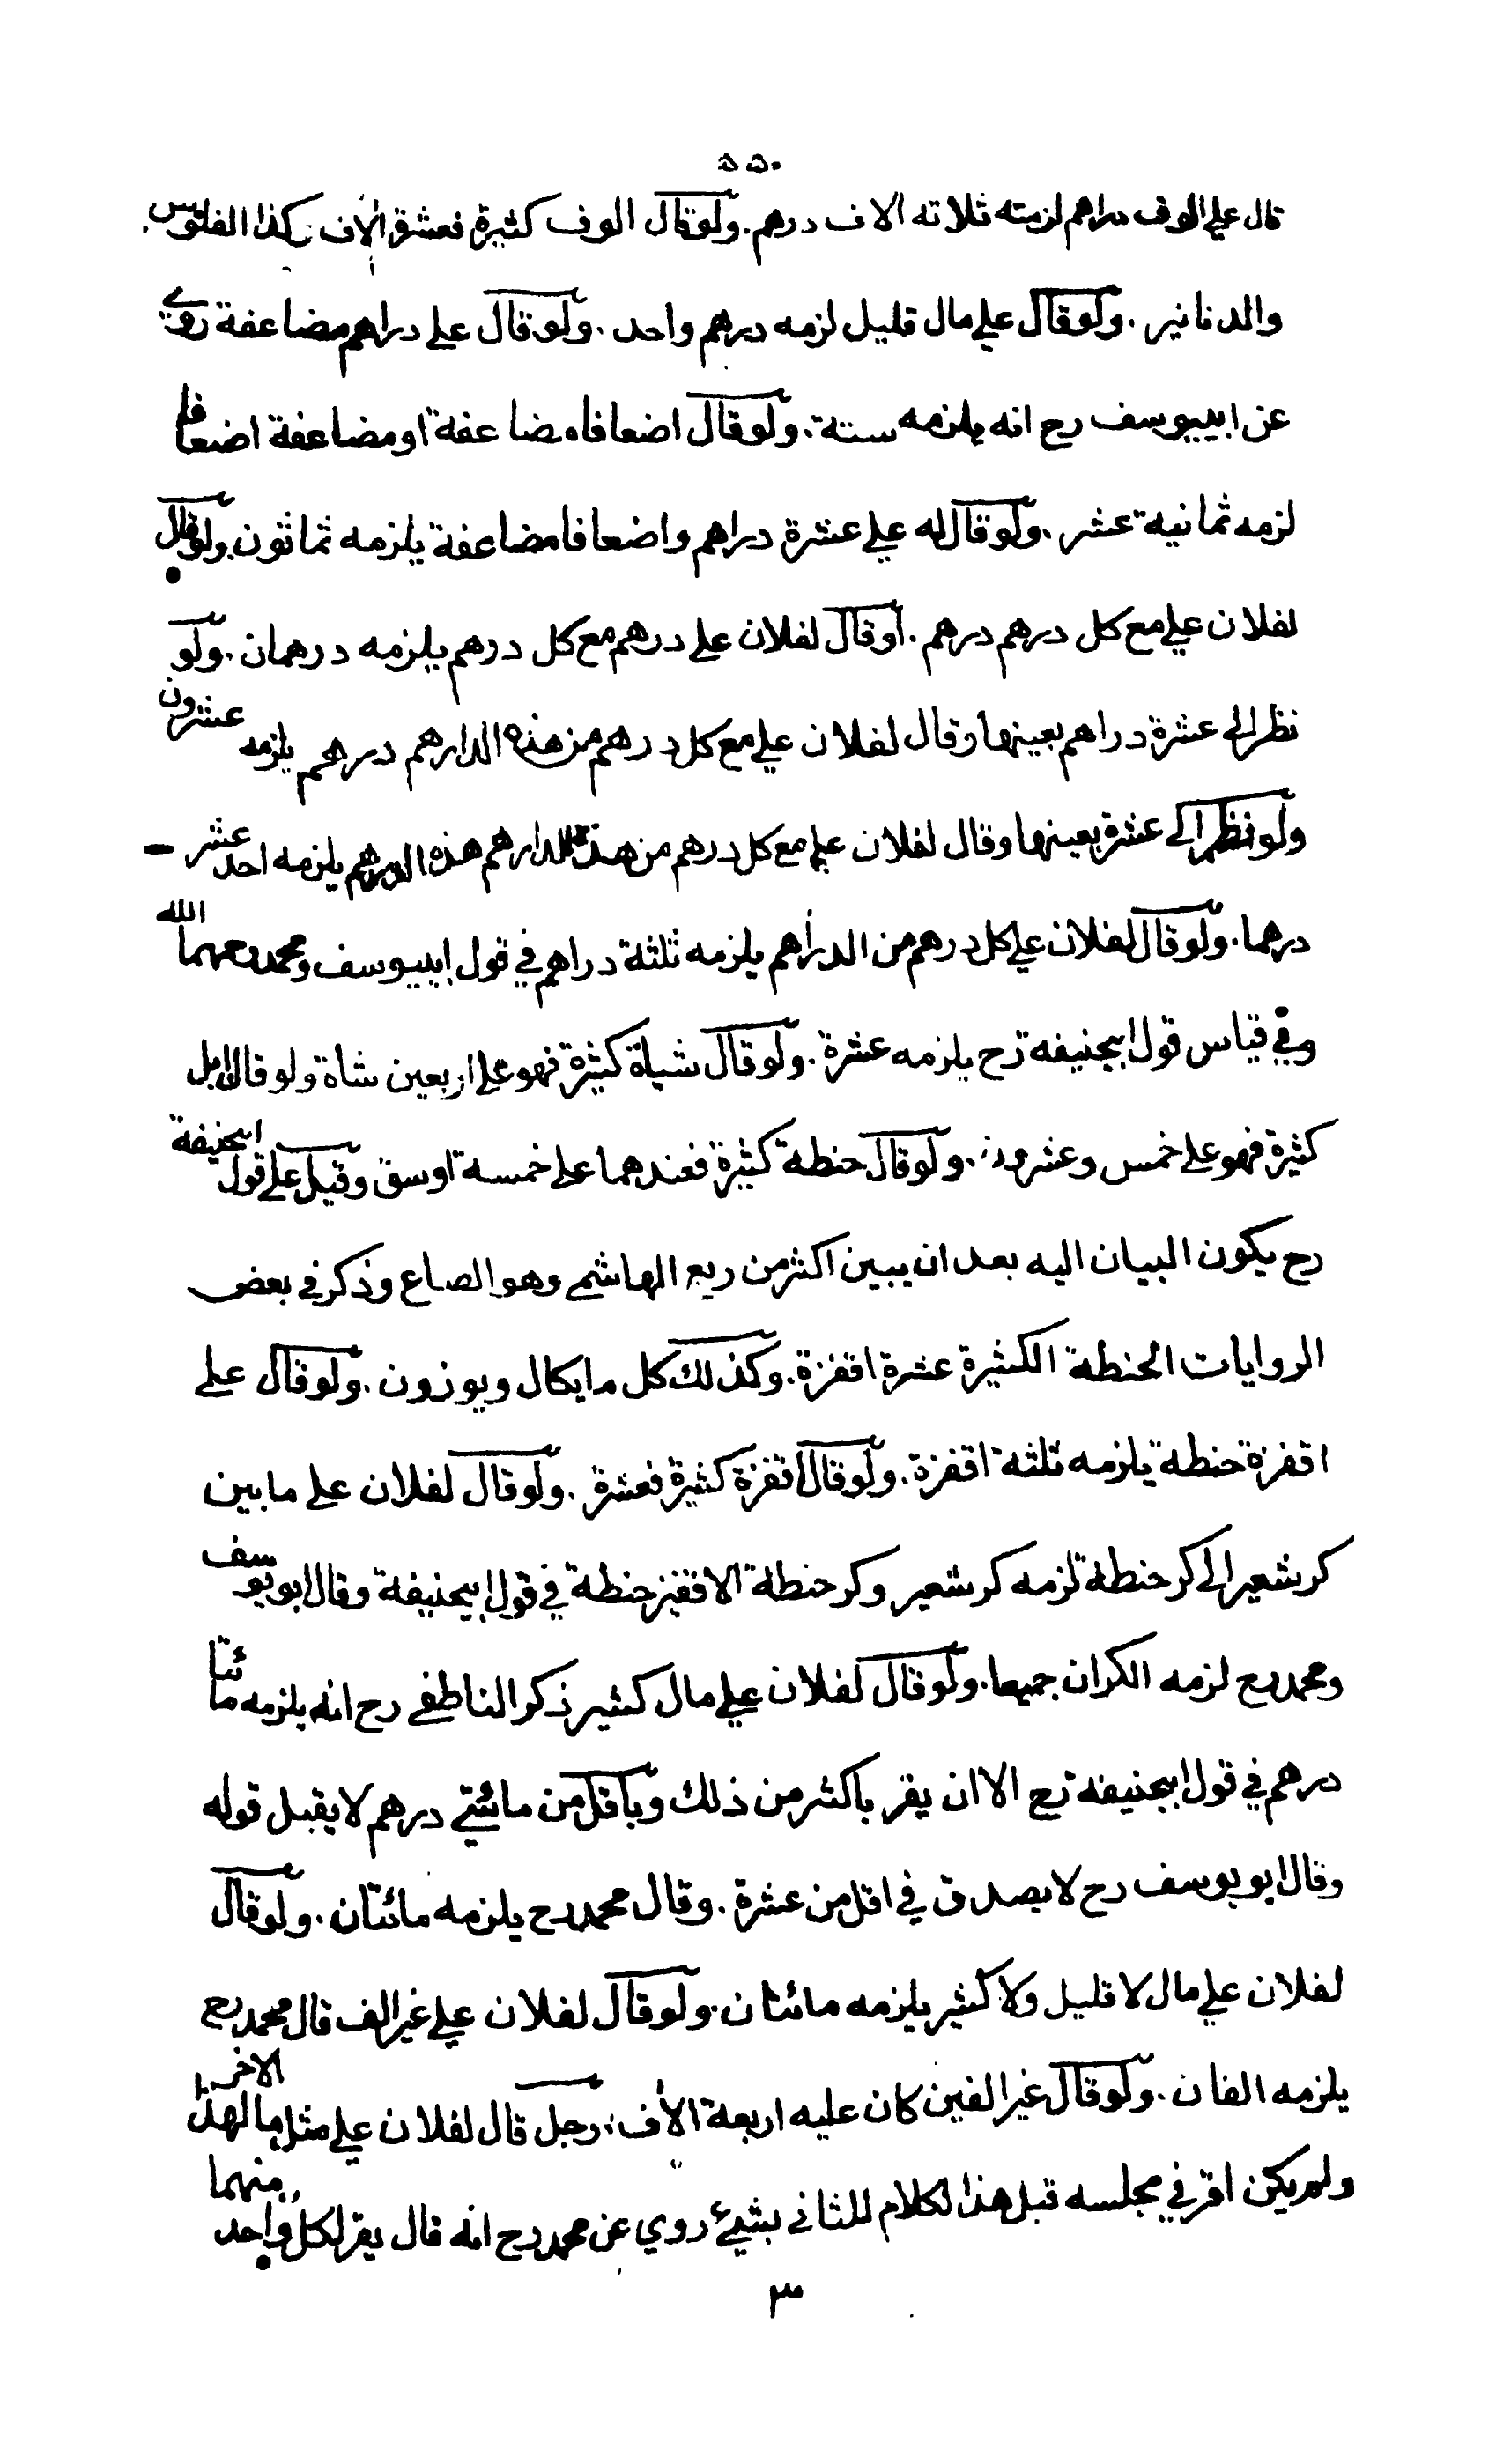 ٥٥٠
قال علي الوف دراهم لزمته ثلاثة الاف درهم. ولو قال الوف كثيرة فعشرة الاف وكذا الفلوس
والدنانير. ولو قال علي مال قليل لزمه درهم واحد. ولو قال علي دراهم مضاعفة روي
عن ابييوسف رح انه يلزمه ستة. ولو قال اضعافا مضاعفة او مضاعفة اضعافا
لزمه ثمانية عشر. ولو قال له علي عشرة دراهم واضعافا مضاعفة يلزمه ثمانون. ولو قال
لفلان علي مع كل درهم درهم. او قال لفلان علي درهم مع كل درهم يلزمه درهمان. ولو
نظر الى عشرة دراهم بعينها وقال لفلان علي مع كل درهم من هذه الدارهم درهم يلزمه عشرون
ولو نظر الى عشرة بعينها وقال لفلان علي مع كل درهم من هذه الدارهم هذه الدرهم يلزمه احد عشر
درهما. ولو قال لفلان علي كل درهم من الدراهم يلزمه ثلثة دراهم في قول ابييوسف ومحمد رحمهما الله
وفي قياس قول ابيحنيفه رح يلزمه عشرة. ولو قال شياة كثيرة فهو على اربعين شاة ولو قال ابل
كثيرة فهو على خمس وعشرون. ولو قال حنطة كثيرة فعندهما على خمسة اوسق وقيل على قول ابيحنيفة
رح يكون البيان اليه بعد ان يبين اكثر من ربع الهاشمي وهو الصاع وذكر في بعض
الروايات الحنطة الكثيرة عشرة اقفزة. وكذلك كل ما يكال ويوزون. ولو قال علي
اقفزة حنطة يلزمه ثلثة اقفزة. ولو قال اقفزة كثيرة فعشرة. ولو قال لفلان علي ما بين
كر شعير الى كر حنطة لزمه كر شعير وكر حنطة الا قفيز حنطة في قول ابيحنيفة وقال ابو يوسف
ومحمد رح لزمه الكران جميعا. ولو قال لفلان علي مال كثير ذكر الناطفي رح انه يلزمه مائتا
درهم في قول ابيحنيفه رح الا ان يقر باكثر من ذلك وباقل من مائتي درهم لا يقبل قوله
وقال ابو يوسف رح لا يصدق في اقل من عشرة. وقال محمد رح يلزمه مائتان. ولو قال
لفلان علي مال لا قليل ولا كثير يلزمه مائتان. ولو قال لفلان علي غير الف قال محمد رح
يلزمه الفان. ولو قال غير الفين كان عليه اربعة الاف. رجل قال لفلان علي مثل ما لهذا الاخر
ولم يكن اقر في مجلسه قبل هذا الكلام للثاني بشيء روي عن محمد رح انه قال يقر لكل واحد منهما
٣